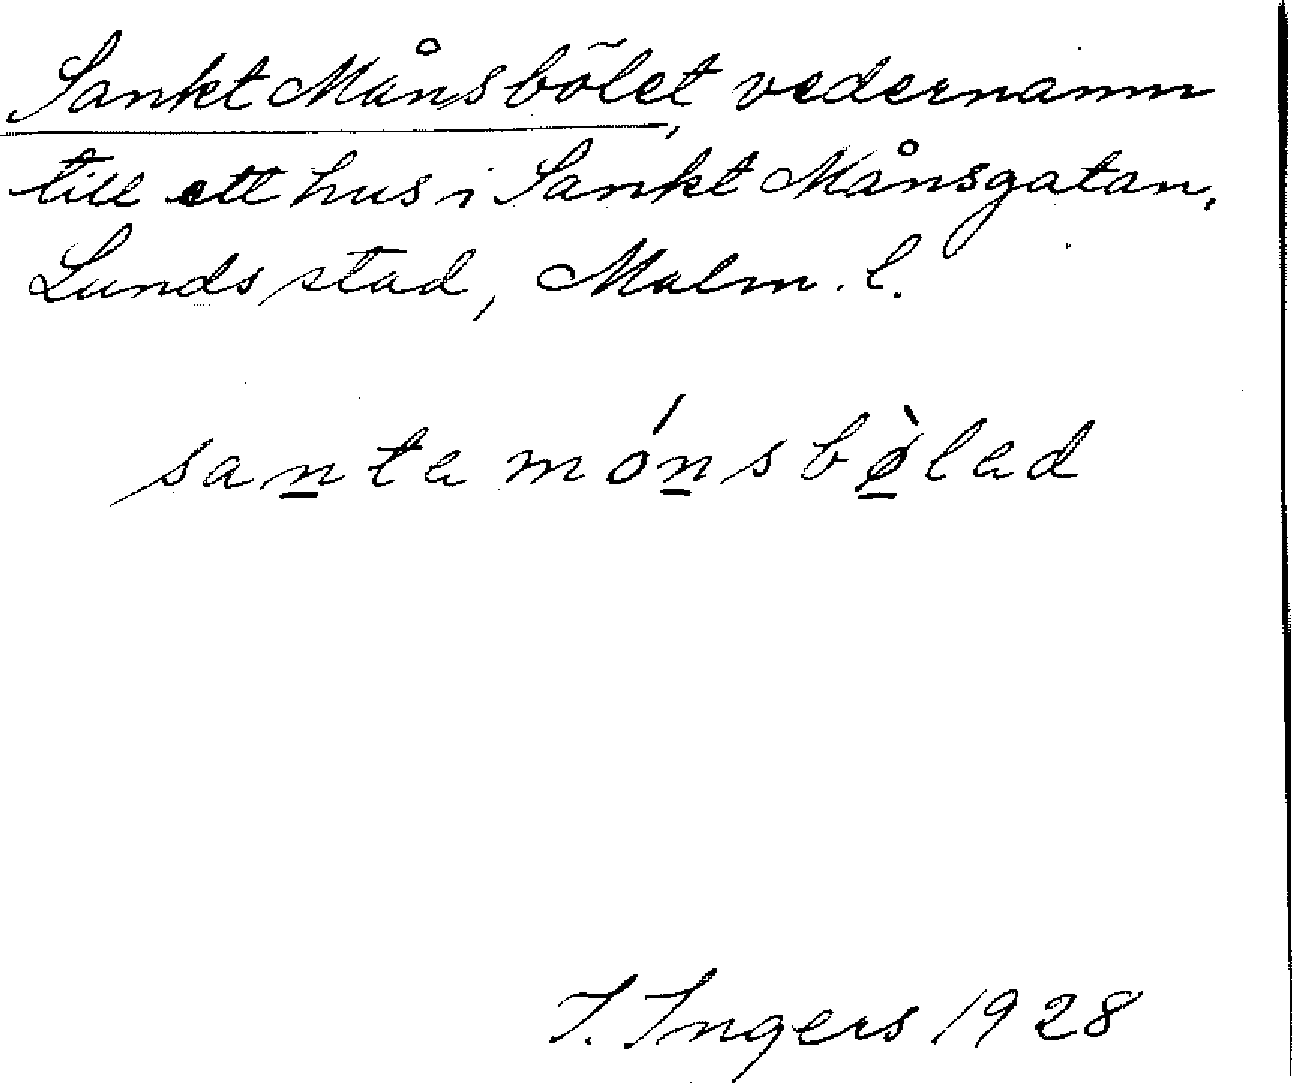 Sankt Månsbölet, vedernamn
till ett hus i Sankt Månsgatan,
Lunds stad, Malm. l.
santa mónsbø̀lad
I. Ingers 1928